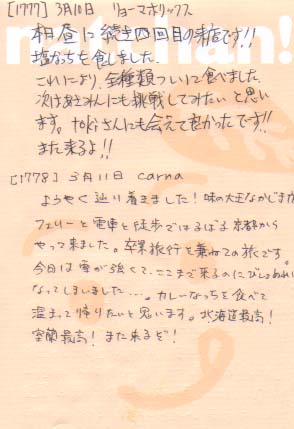 [1777] 3月10日 リョーマホリックス
natchan!
本日昼に続き四回目の来店です!!
塩なっちを食しました。
これにより、全種類ついに食べました
次はあきさんにも挑戦してみたいと思い
ます。tokiさんにも会えて良かったです!!
また来るよ!!
[1778] 3月11日 carna
ようやく辿り着きました!味の大王なかじまか
フェリーと電車と徒歩ではるばる京都から
やって来ました。卒業旅行を兼ねての旅です。
今日は雪が強くて、ここまで来るのにびしょぬれに
なってしまいました…。カレーなっちを食べて
温まって帰りたいと思います。北海道最高!
室蘭最高!また来るぞ!